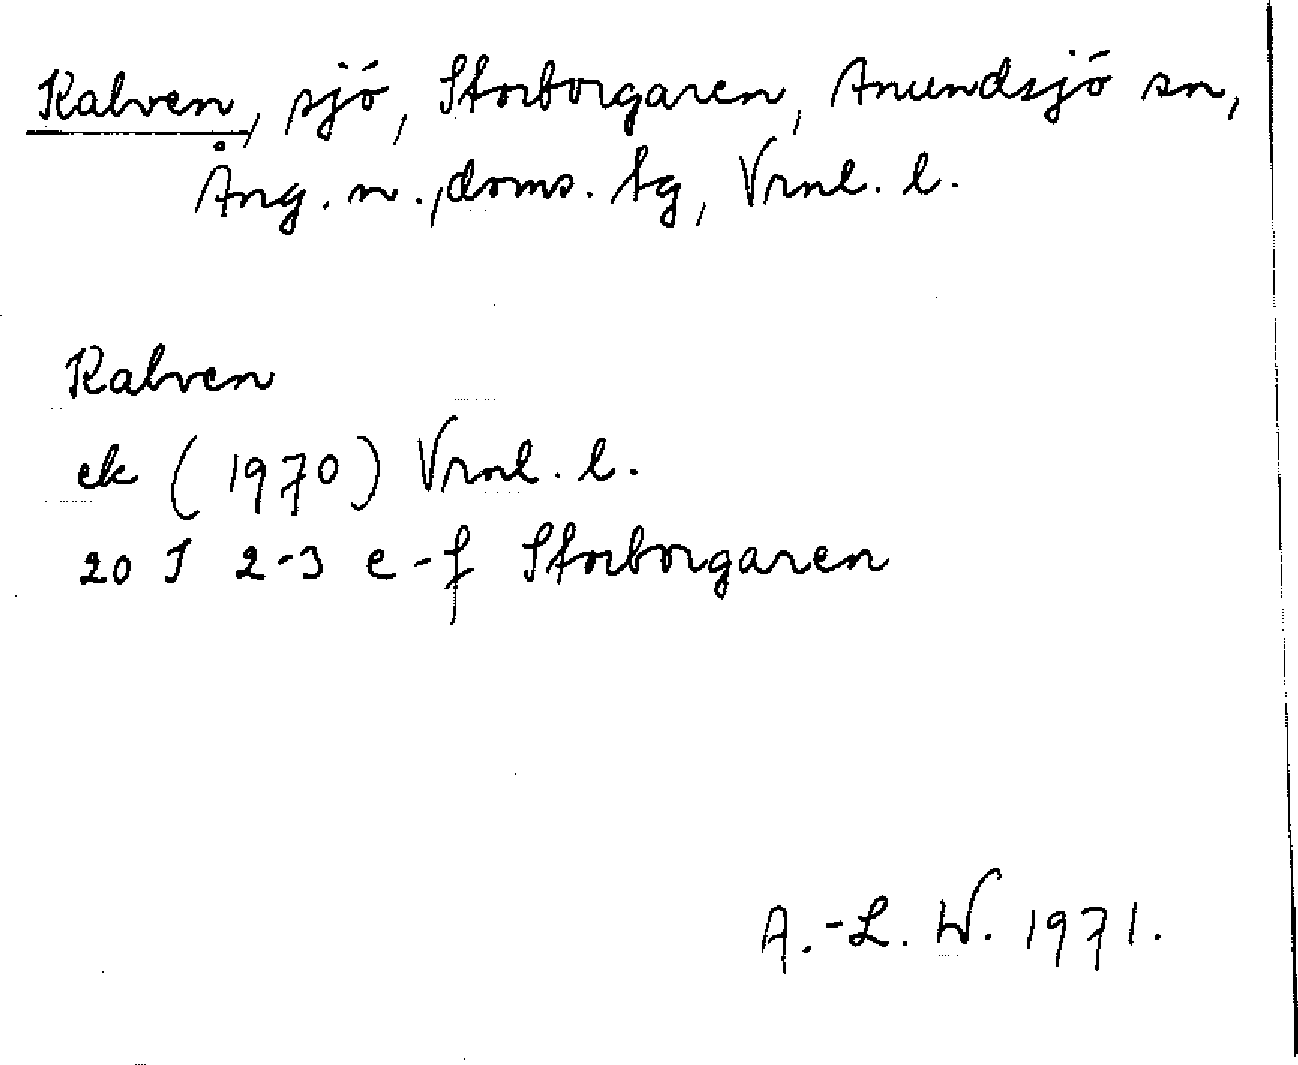 Kalven, sjö, Storborgaren, Anundsjö sn,
Ång. n., doms. tg, Vrnl. l.
Kalven
ek (1970) Vrnl. l.
20 I 2-3 e-f Storborgaren
A.-L. W. 1971.